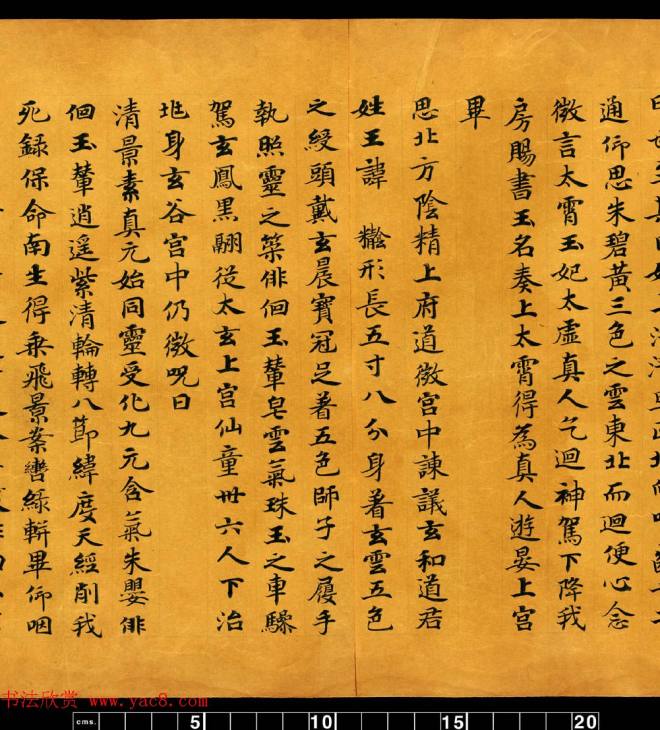 通仰思朱碧黃三色之雲東北而迴便心念
微言太霄玉妃太虛真人乞迴神駕下降我
房賜書玉名奏上太霄得為真人遊晏上宮
畢
思北方陰精上府道微宮中諫議玄和道君
姓王諱 形長五寸八分身著玄雲五色
之綬頭戴玄晨寶冠足著五色師子之履手
執照靈之築俳佪玉輦皂雲氣珠玉之車驂
駕玄鳳黑翮從太玄上宮仙童卅六人下治
身玄谷宮中仍微呪曰
清景素真元始同靈受化九元含氣朱嬰俳
佪玉輦逍遥紫清輪轉八節緯度天經削我
死錄保命南生得乘飛景案轡綠軿畢仰咽
书法欣赏 www.yac8.com
cms. 5 10 15 20